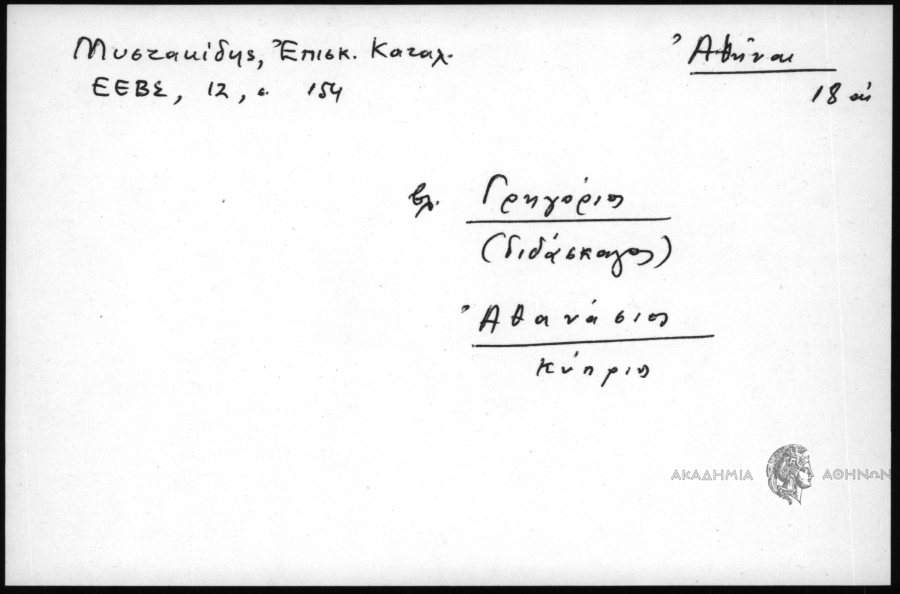 Μυστακίδης, Ἐπισκ. Καταλ.
ΕΕΒΣ, 12, σ. 154
Ἀθῆναι
18 αἰ
βλ. Γρηγόριος
(διδάσκαλος)
Ἀθανάσιος
Κύπριος
ΑΚΑΔΗΜΙΑ ΑΘΗΝΩΝ